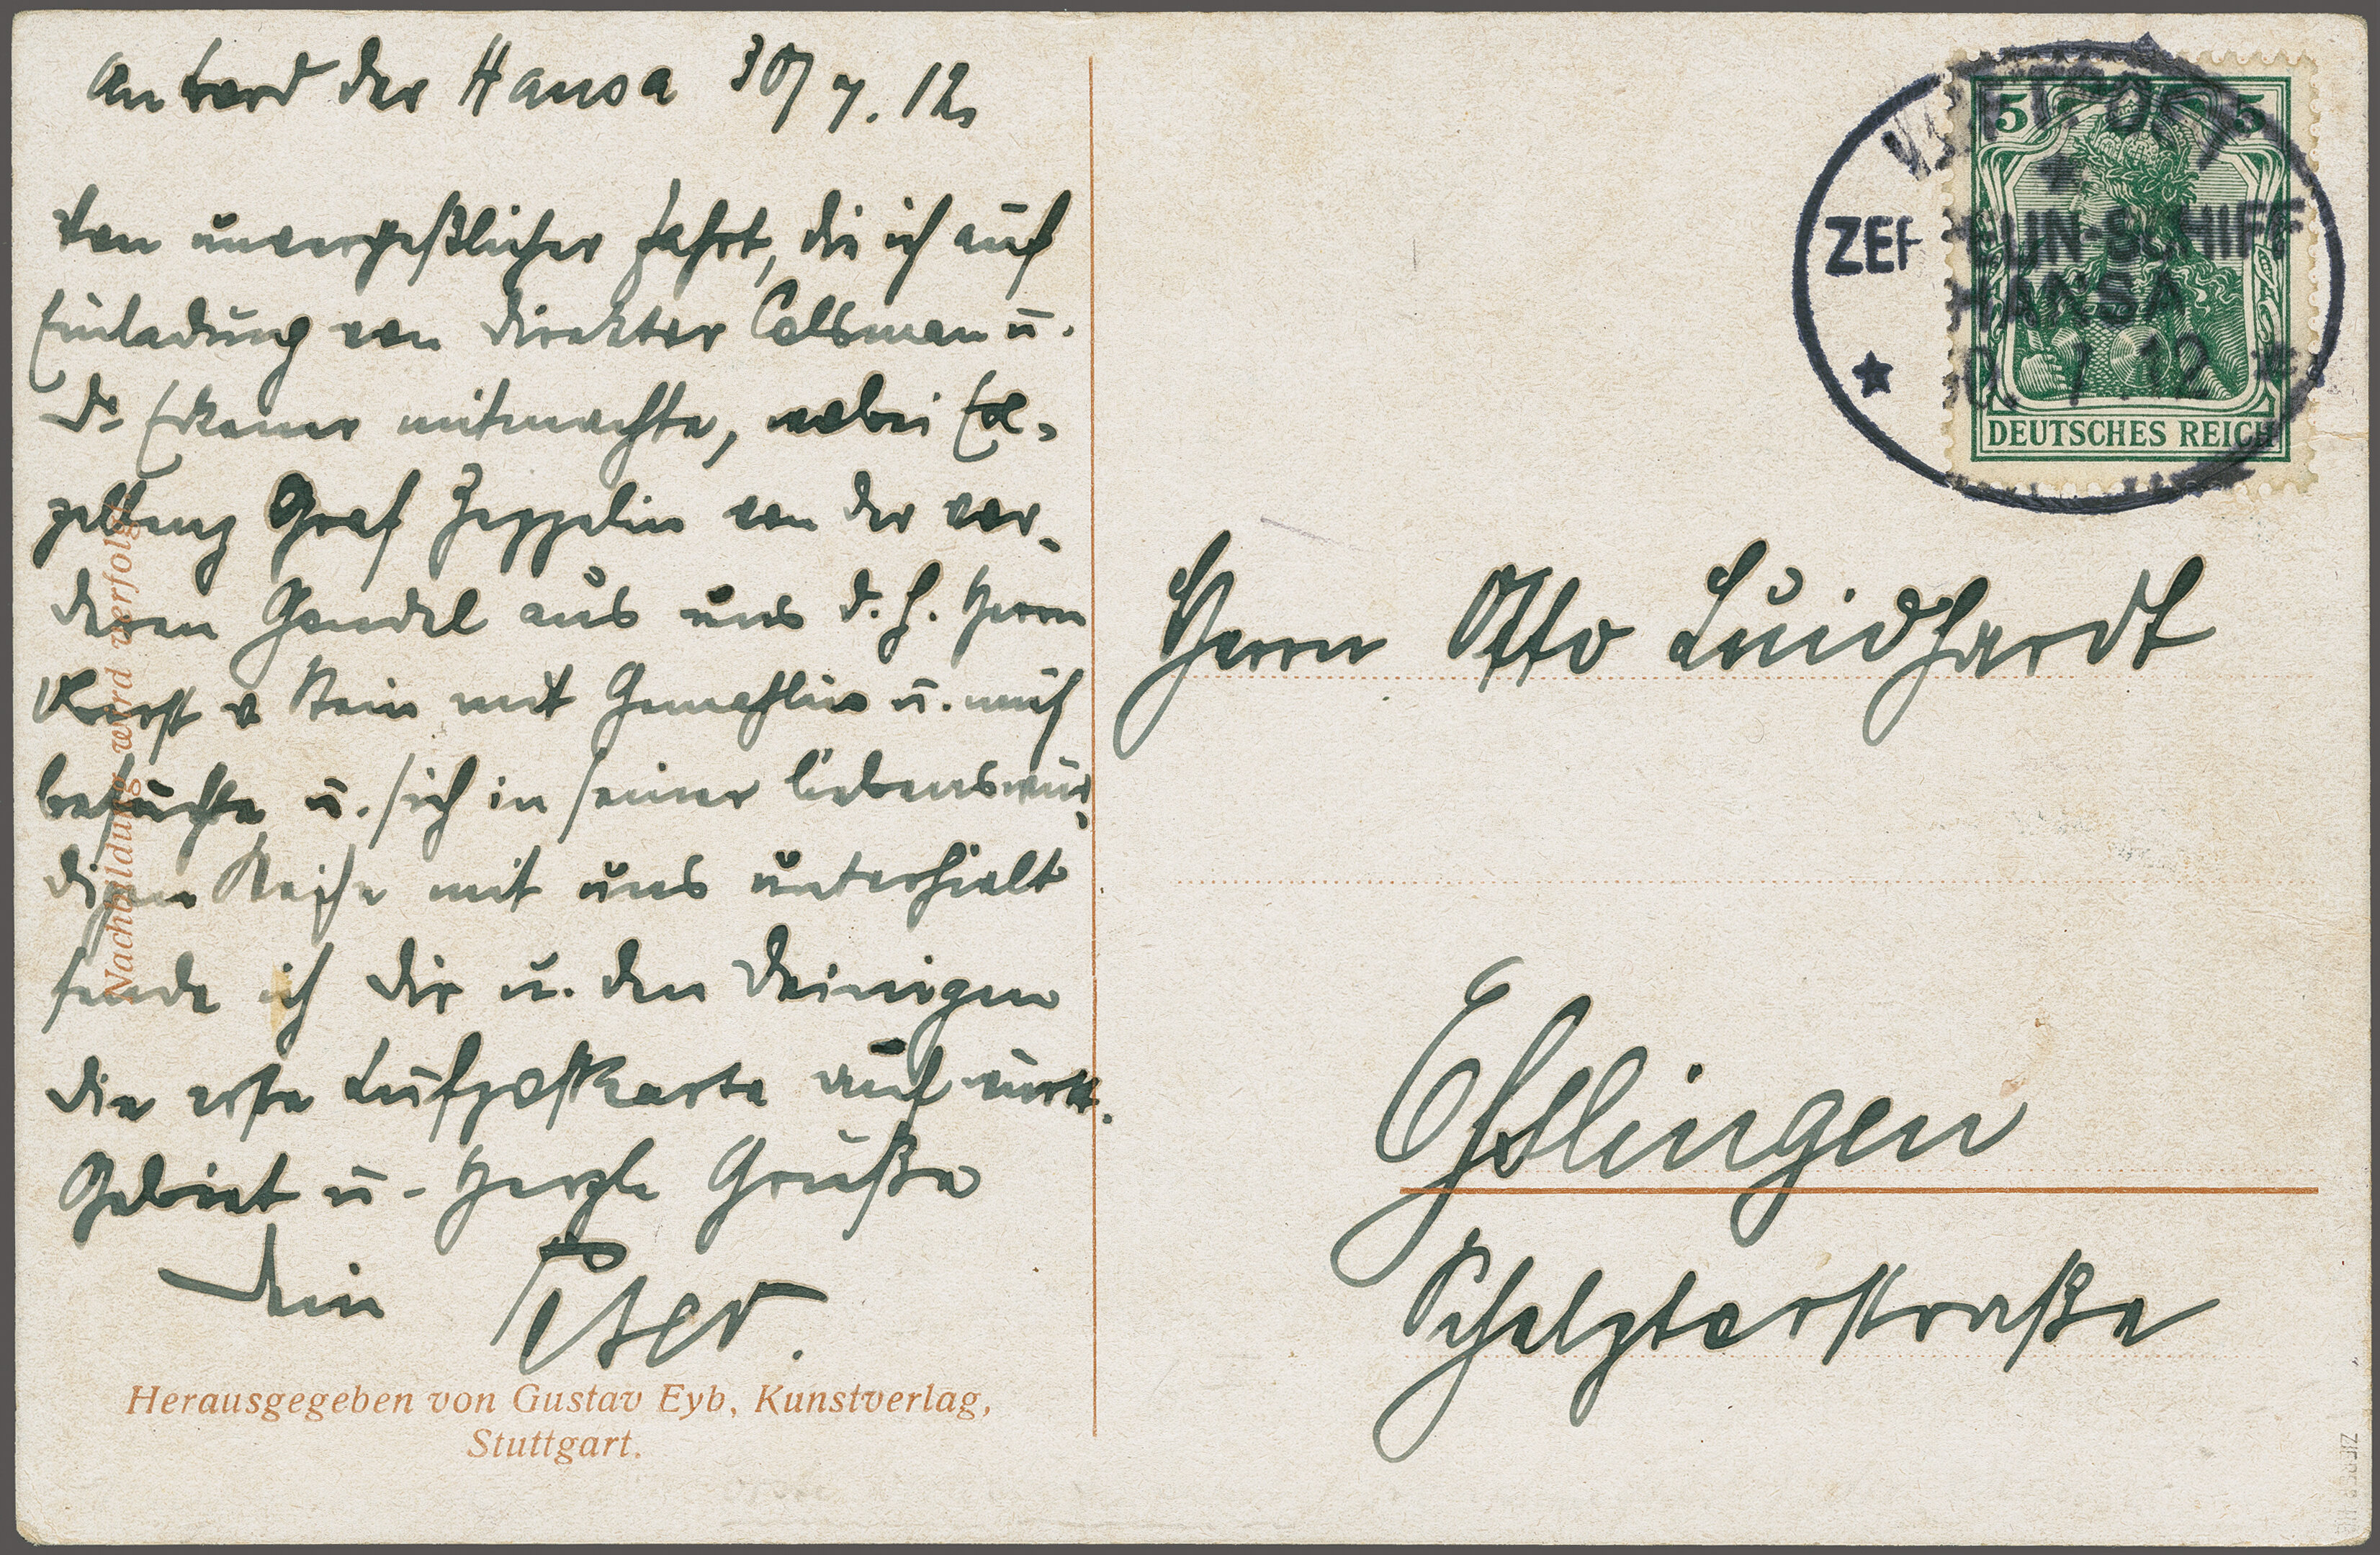 An bord der Hansa 30/7. 12.
Von unvergeßlicher Fahrt, die ich auf
Einladung von Direktor Colsman u.
Dr Eckener mitmachte, wobei Ex-
zellenz Graf Zeppelin von der vor-
deren Gondel aus uns d. h. Herrn
v Stein mit Gemahlin u. mich
besuchte u. sich in seiner liebenswür-
digen Weise mit uns unterhielt
sende ich Dir u. den Deinigen
die erste Luftpostkarte auf württ.
Gebiet u. herzl. Grüße
Dein
Herausgegeben von Gustav Eyb, Kunstverlag,
Stuttgart.
Nachbildung wird verfolgt
5 5
DEUTSCHES REICH
ZEPPELIN-SCHIFF
HANSA
30. 7. 12
Herrn Otto Luidhardt
Eßlingen